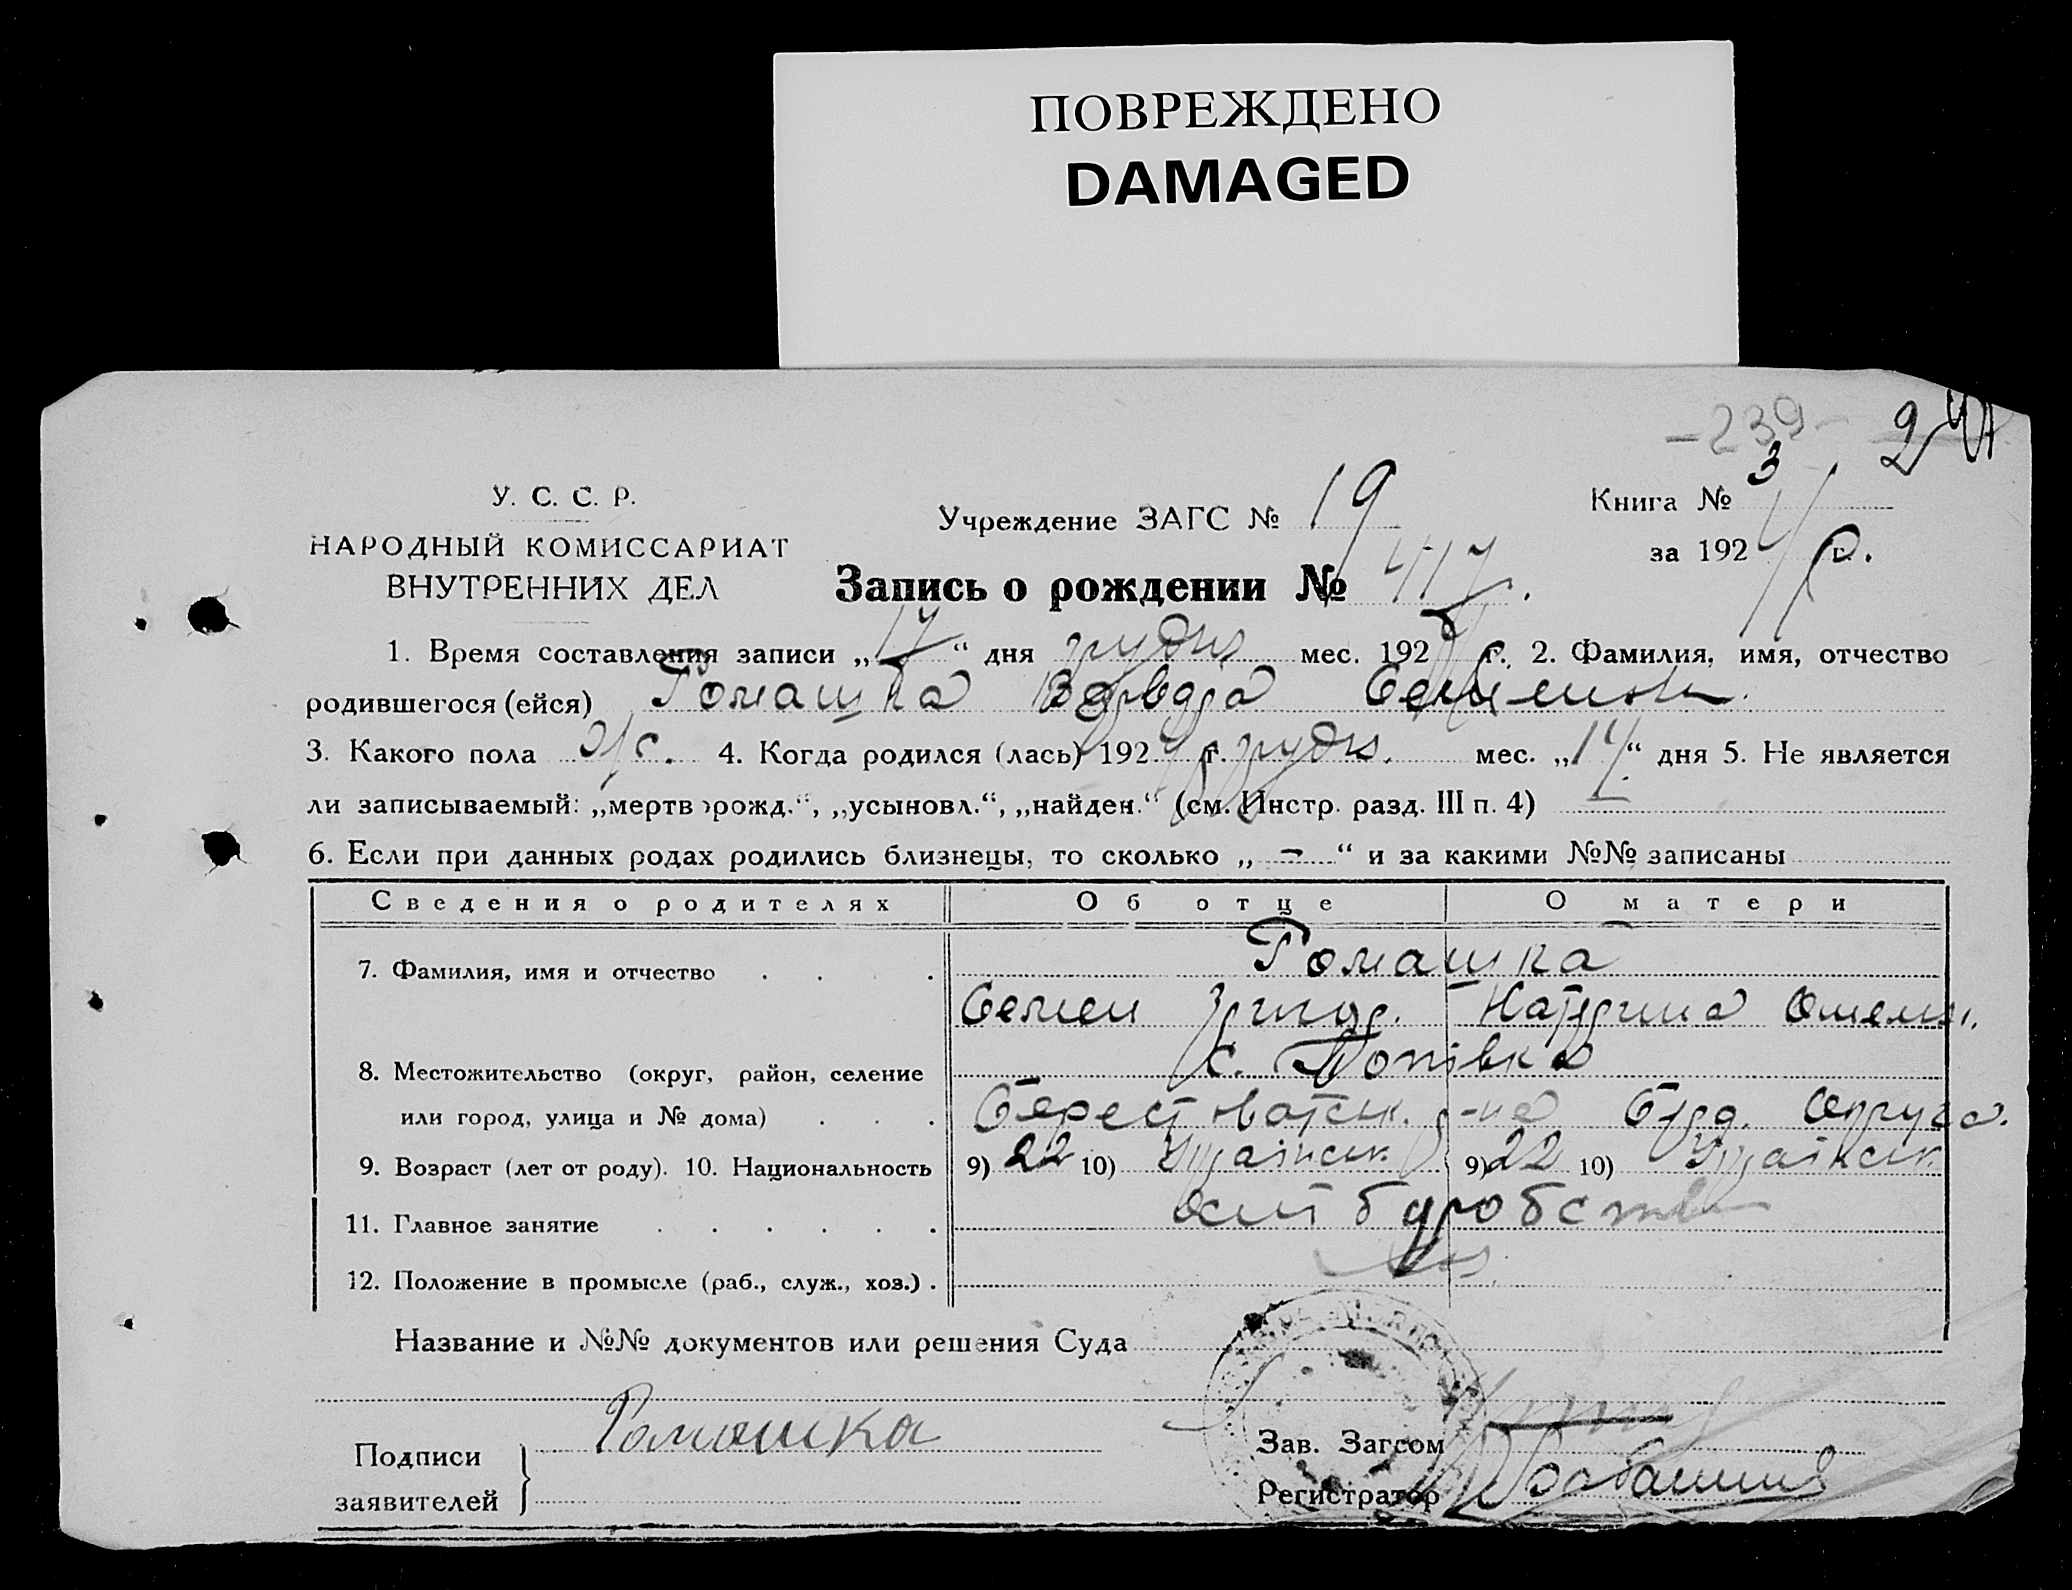 ПОВРЕЖДЕНО
DAMAGED
-239-
У. С. С. Р.
НАРОДНЫЙ КОМИССАРИАТ
ВНУТРЕННИХ ДЕЛ
Учреждение ЗАГС № 19
Книга № 3
за 1924 г.
Запись о рождении № 417
1. Время составления записи „17“ дня грудня мес. 1924 г. 2. Фамилия, имя, отчество
родившегося (ейся) Ромашка Варвара Семеновн.
3. Какого пола ж. 4. Когда родился (лась) 1924 г. грудн. мес. „14“ дня 5. Не является
ли записываемый: „мертворожд.“, „усыновл.“, „найден.“ (см. Инстр. разд. III п. 4) —
6. Если при данных родах родились близнецы, то сколько „ — “ и за какими №№ записаны
Сведения о родителях Об отце О матери
7. Фамилия, имя и отчество Ромашка
Семен Григор. Катерина Омелян.
с. Попівка
8. Местожительство (округ, район, селение
или город, улица и № дома) Берестоватськ. р-на Берд. Округа.
9. Возраст (лет от роду). 10. Национальность 9) 22 10) Українськ. 9) 22 10) Українськ.
11. Главное занятие хлібаробство
12. Положение в промысле (раб., служ., хоз.)
Название и №№ документов или решения Суда
Подписи
заявителей
Ромашка
Зав. Загсом
Регистратор